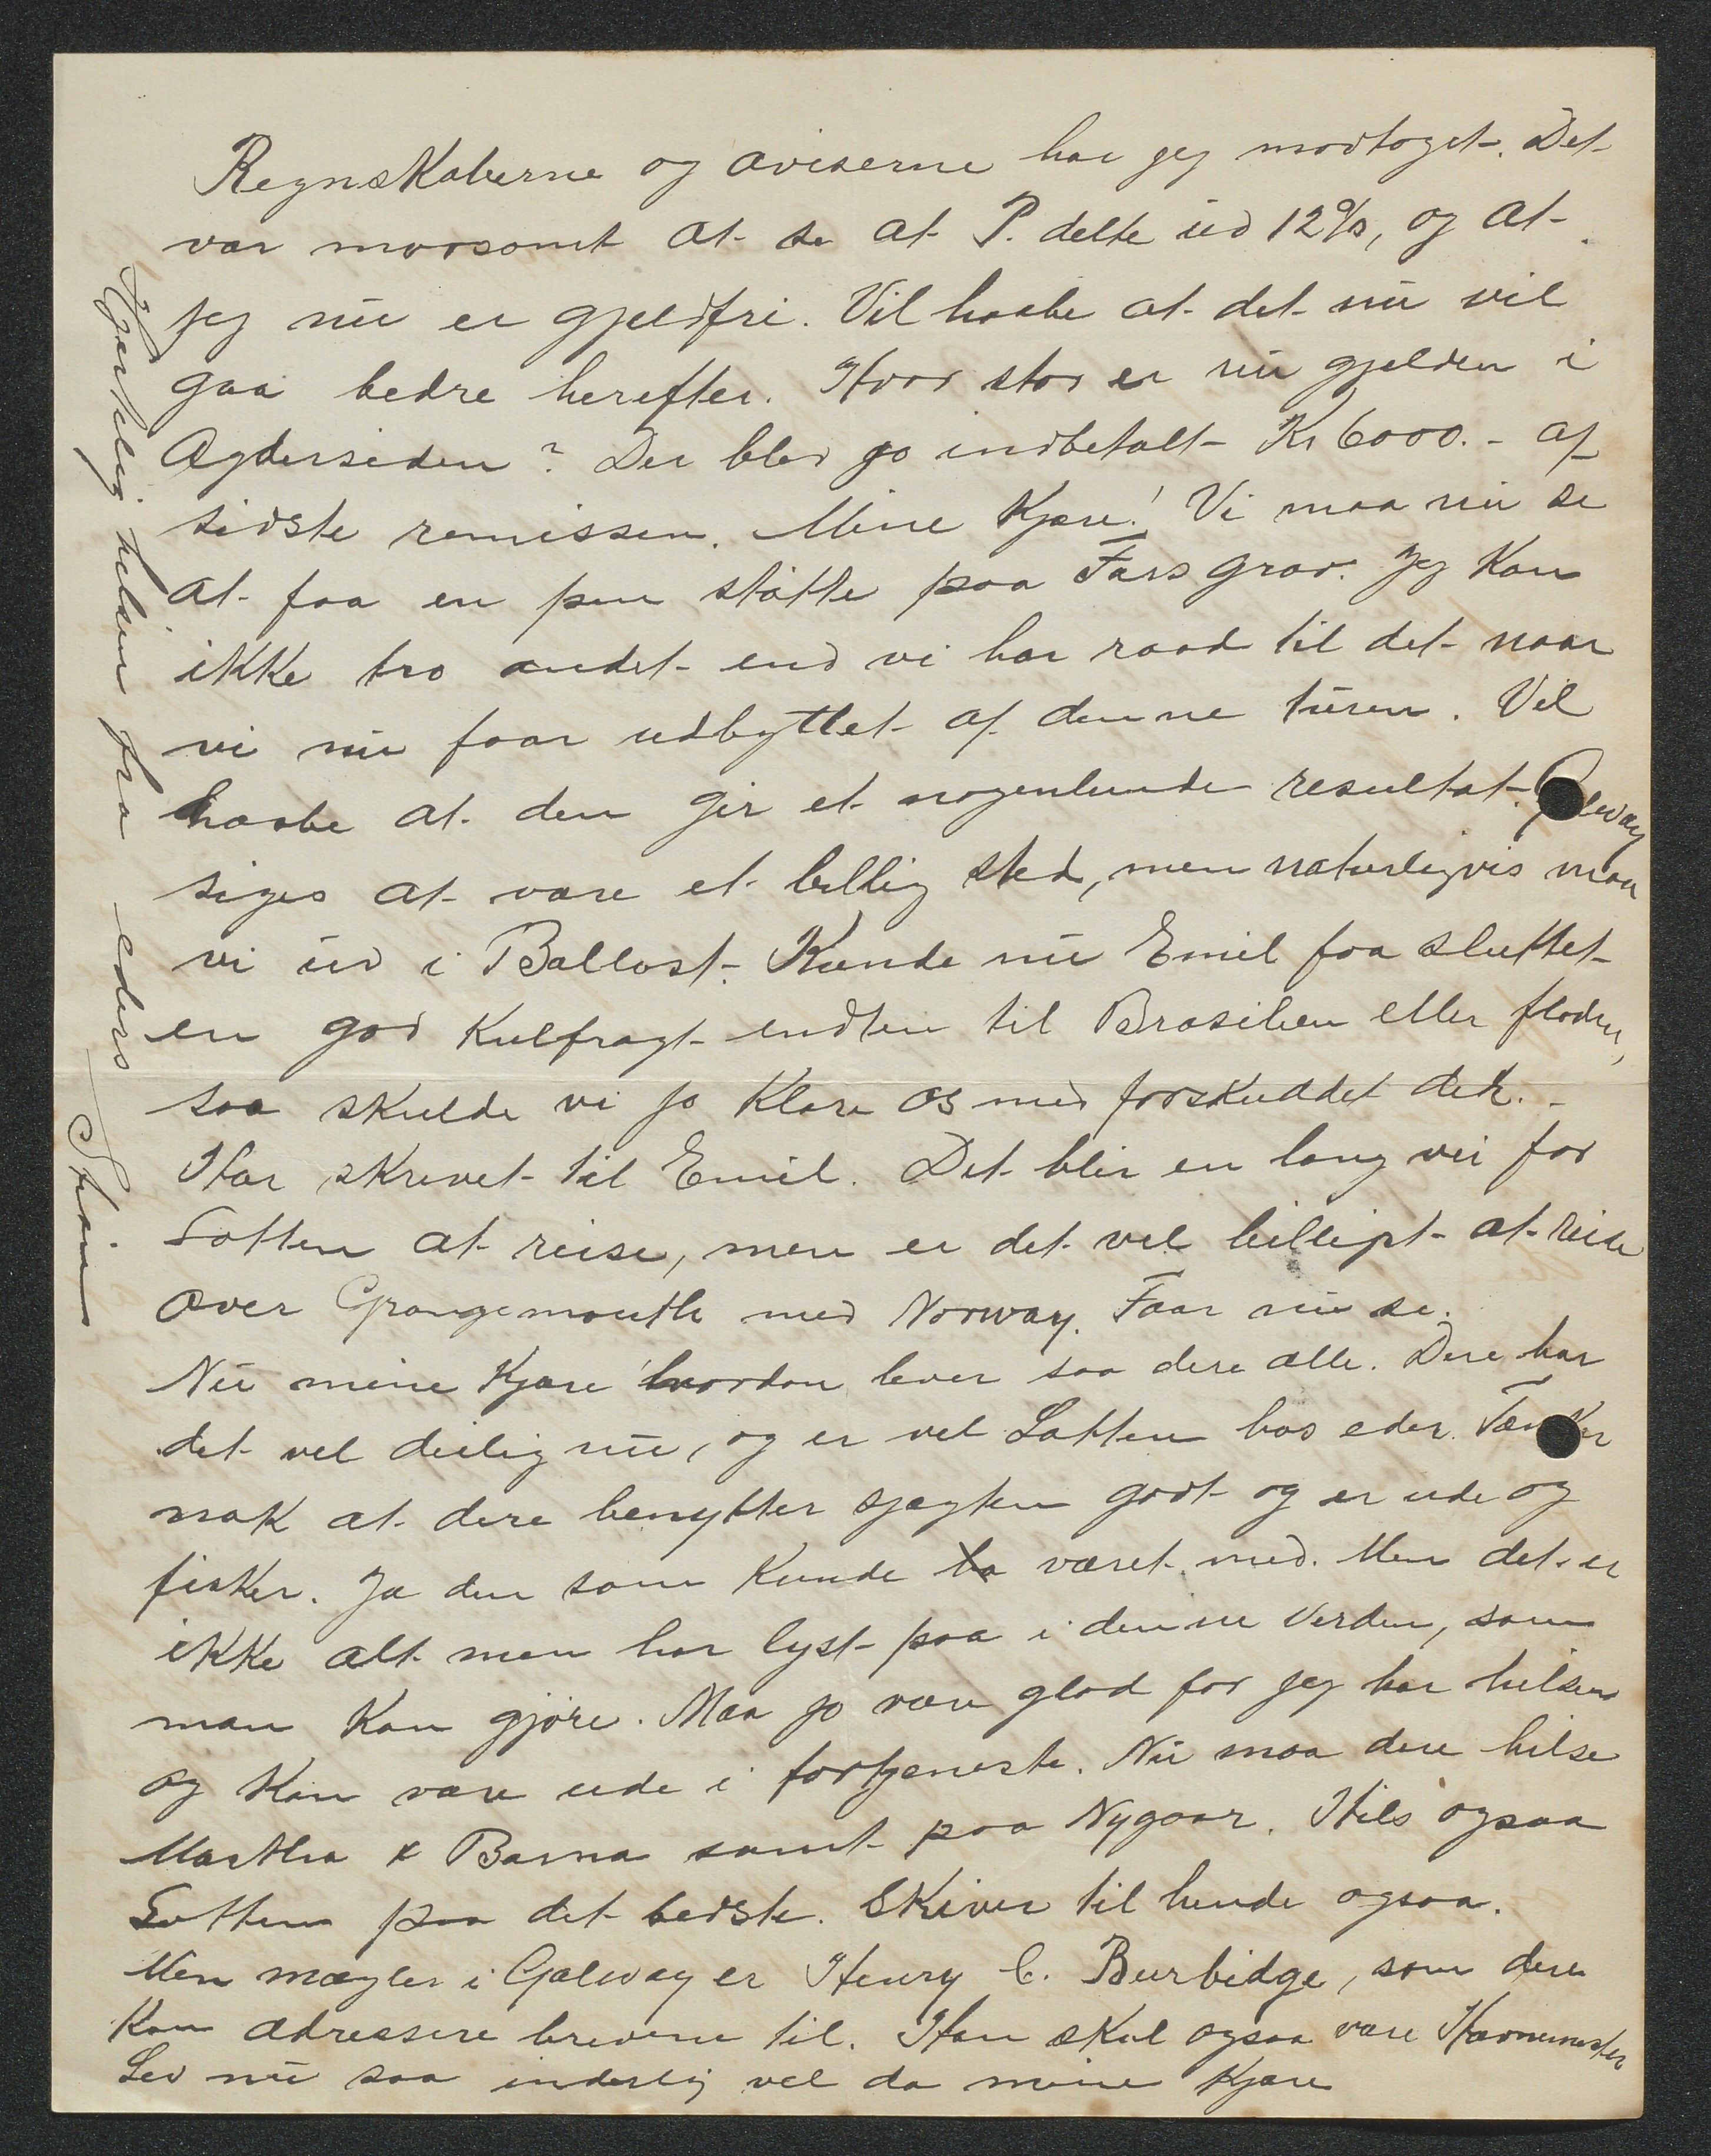 Regnskaberne og aviserne har jeg modtaget. Det
var morsomt at se at P. delte ud 12%, og at
jeg nu er gjeldfri. Vil haabe at det nu vil
gaa bedre herefter. Hvor stor er nu gjelden i
Agdersiden? Der blev jo indbetalt Kr 6000.- af
sidste remissen. Mine Kjære! Vi maa nu se
at faa en pen støtte paa Fars grav. Jeg kan
ikke tro andet end vi har raad til det naar
vi nu faar udbyttet af denne turen. Vil
haabe at den gir et nogenlunde resultat. Galway
siges at være et billig sted, men naturligvis maa
vi ud i Ballast. Kunde nu Emil faa sluttet
en god Kulfragt endten til Brasilien eller floden,
saa skulde vi jo klare os med forskuddet der.-
Har skrevet til Emil. Det blir en lang vei for
Lotten at reise, men er det vel billigst at reise
over Grangemouth med Norway. Faar nu se.
Nu mine Kjære hvordan lever saa dere alle. Dere har
det vel deilig nu, og er vel Lotten hos eder. Tænker
nok at dere benytter sjægten godt og er ude og
fisker. Ja den som kunde ha været med. Men det er
ikke alt man har lyst paa i denne Verden, som
man kan gjøre. Maa jo være glad for jeg har helsen
og kan være ude i fortjeneste. Nu maa dere hilse
Martha & Barna samt paa Nygaar. Hils ogsaa
Lotten paa det bedste. Skiver til hende ogsaa.
Men mægler i Galway er Henry C. Burbidge, som dere
kan adressere brevene til. Han skal ogsaa være Havnemester
Lev nu saa inderlig vel da mine Kjære
Hjertelig hilsen fra eders